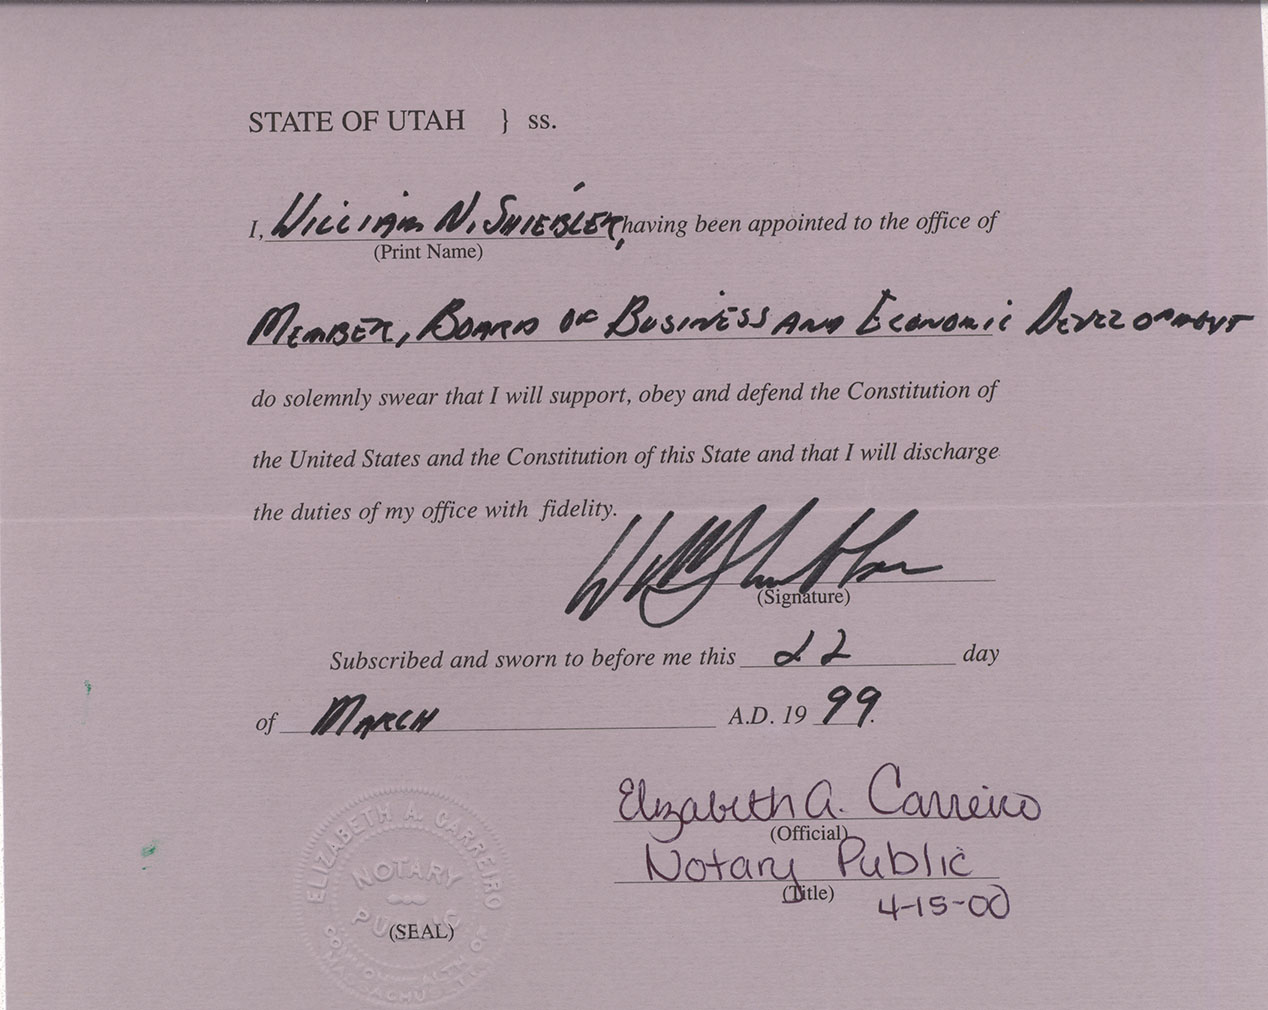 STATE OF UTAH } ss.
I, WILLIAM N. SHIEBLER, having been appointed to the office of
(Print Name)
MEMBER, BOARD OF BUSINESS AND ECONOMIC DEVELOPMENT
do solemnly swear that I will support, obey and defend the Constitution of
the United States and the Constitution of this State and that I will discharge
the duties of my office with fidelity.
(Signature)
Subscribed and sworn to before me this 22 day
of MARCH A.D. 19 99.
Elizabeth A. Carreiro
(Official)
Notary Public
(Title)
4-15-00
ELIZABETH A. CARREIRO
NOTARY
PUBLIC
(SEAL)
COMMONWEALTH OF
MASSACHUSETTS